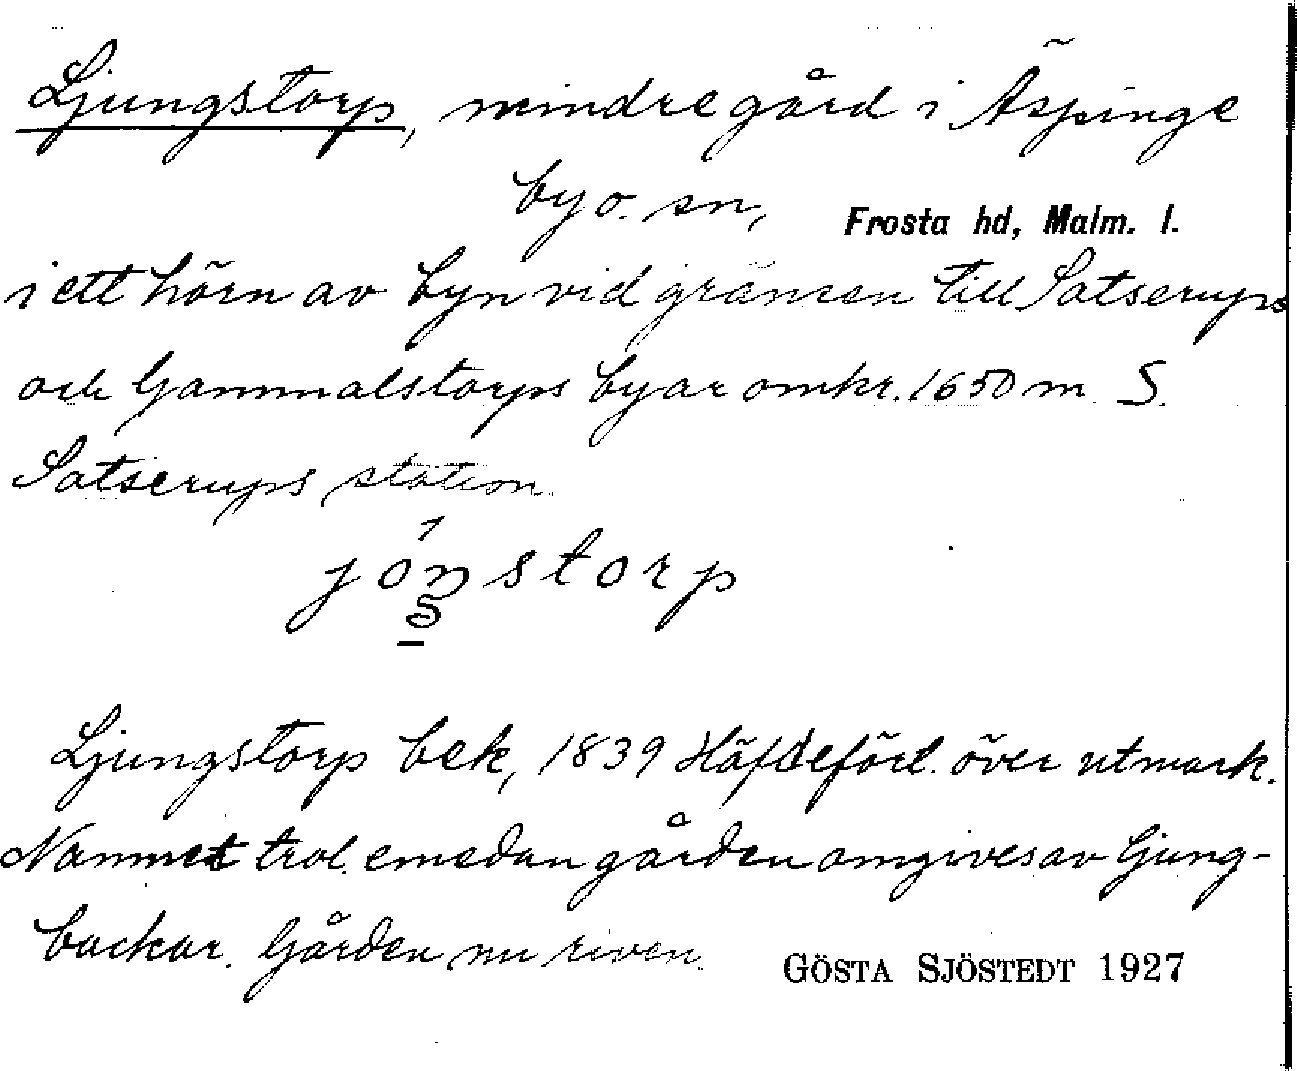 Ljungstorp, mindre gård i Äspinge
by o. sn, Frosta hd, Malm. l.
i ett hörn av byn vid gränsen till Satserups
och Gammalstorps byar omkr. 1650 m S.
Satserups station.
jónstorp
Ljungstorp bek, 1839 Häfdeförd. över utmark.
Namnet trol. emedan gården omgives av ljung-
backar. Gården nu riven.
GÖSTA SJÖSTEDT 1927